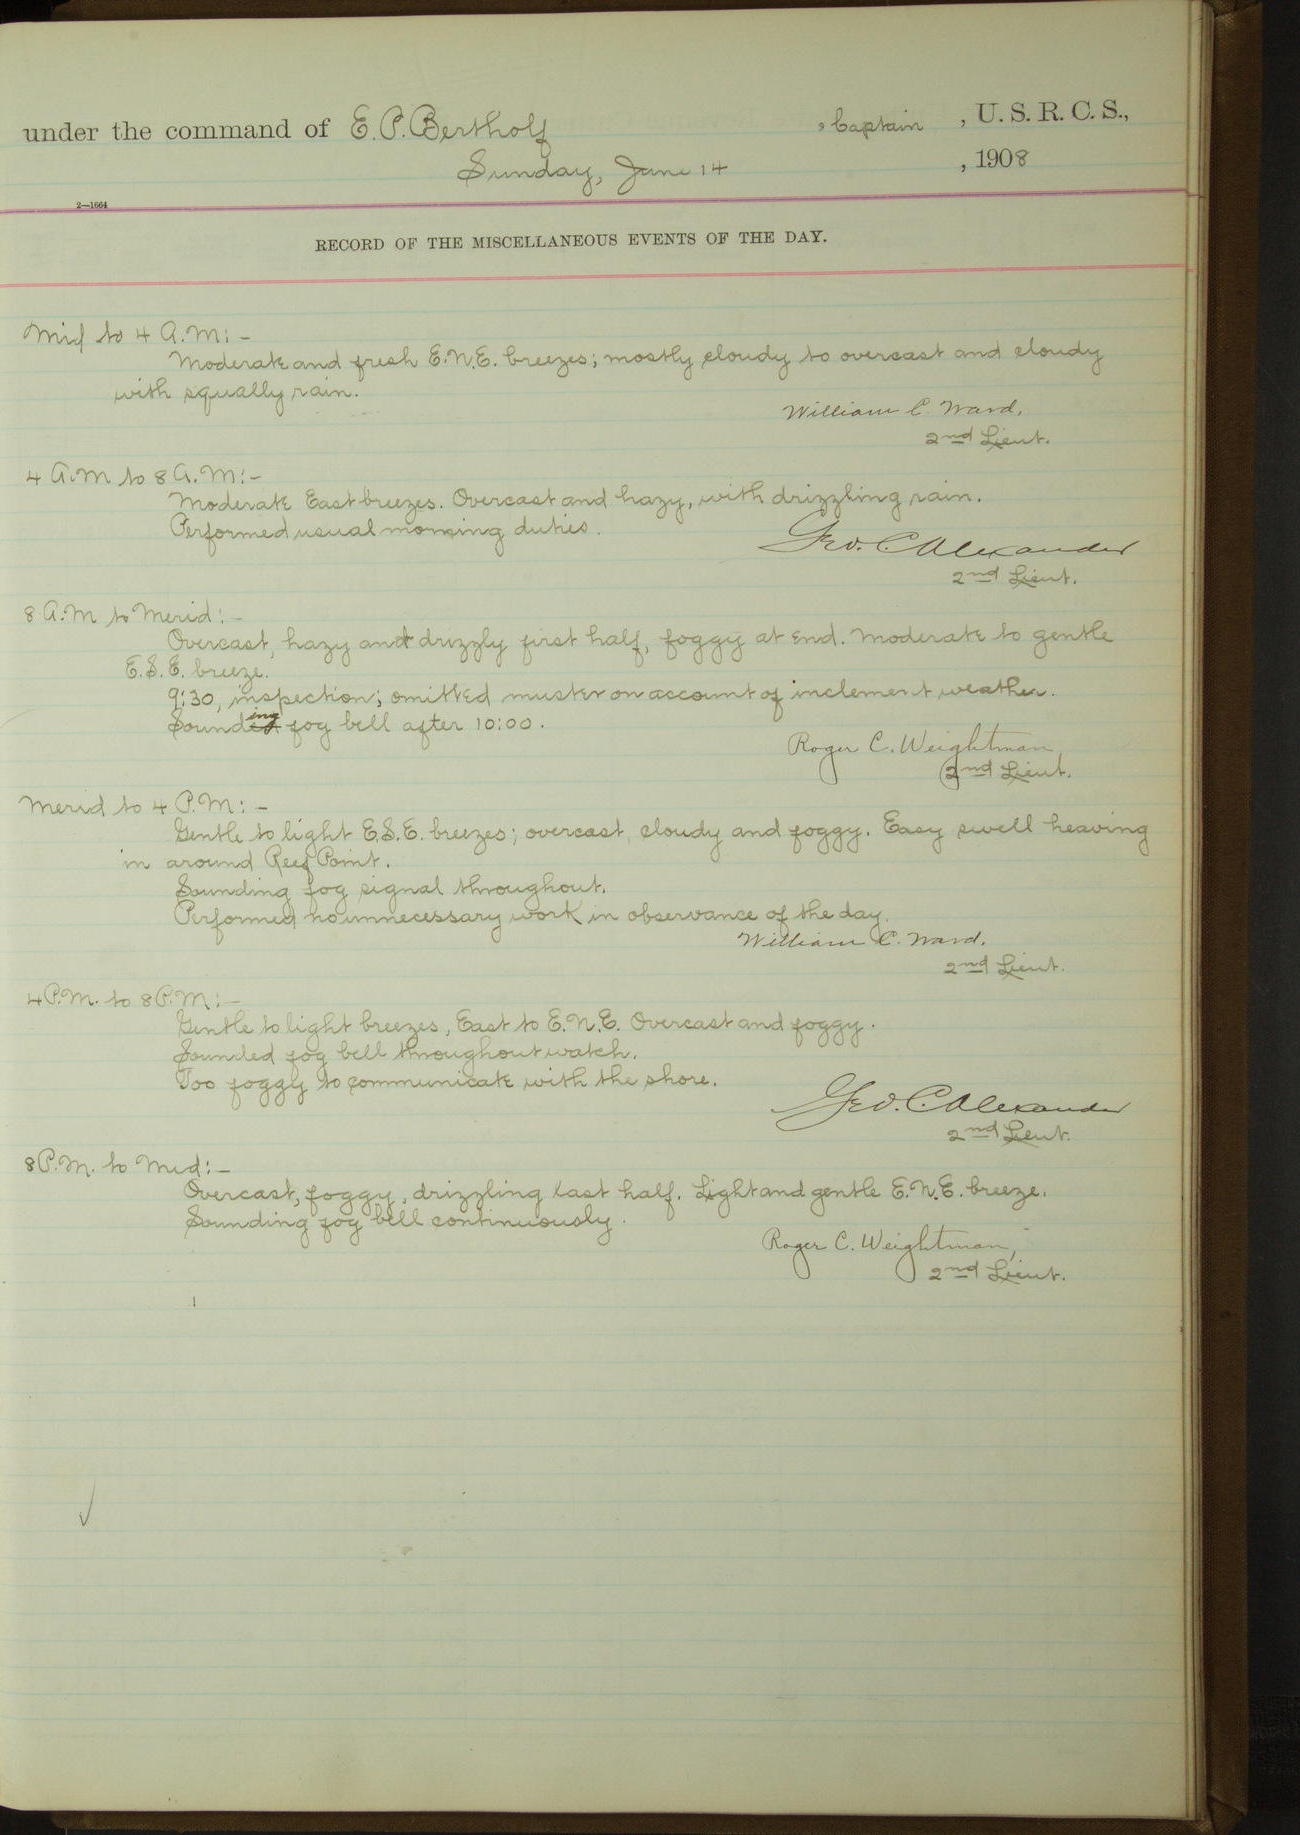 under the command of E. P. Bertholf, Captain, U. S. R. C. S.,
Sunday, June 14, 1908
2—1664
RECORD OF THE MISCELLANEOUS EVENTS OF THE DAY.
Mid to 4 A.M:-
Moderate and fresh E.N.E. breezes; mostly cloudy to overcast and cloudy
with squally rain.
William C. Ward,
2nd Lieut.
4 A.M to 8 A.M:-
Moderate East breezes. Overcast and hazy, with drizzling rain.
Performed usual morning duties.
Geo. C. Alexander
2nd Lieut.
8 A.M to Merid:-
Overcast, hazy and drizzly first half, foggy at end. Moderate to gentle
E.S.E. breeze.
9:30, inspection; omitted muster on account of inclement weather.
Sounding fog bell after 10:00.
Roger C. Weightman,
2nd Lieut.
Merid to 4 P.M:-
Gentle to light E.S.E. breezes; overcast, cloudy and foggy. Easy swell heaving
in around Reef Point.
Sounding fog signal throughout.
Performed no unnecessary work in observance of the day.
William C. Ward.
2nd Lieut.
4 P.M. to 8 P.M:-
Gentle to light breezes, East to E.N.E. Overcast and foggy.
Sounded fog bell throughout watch.
Too foggy to communicate with the shore.
Geo. C. Alexander
2nd Lieut.
8 P.M. to Mid:-
Overcast, foggy, drizzling last half. Light and gentle E.N.E. breeze.
Sounding fog bell continuously.
Roger C. Weightman,
2nd Lieut.